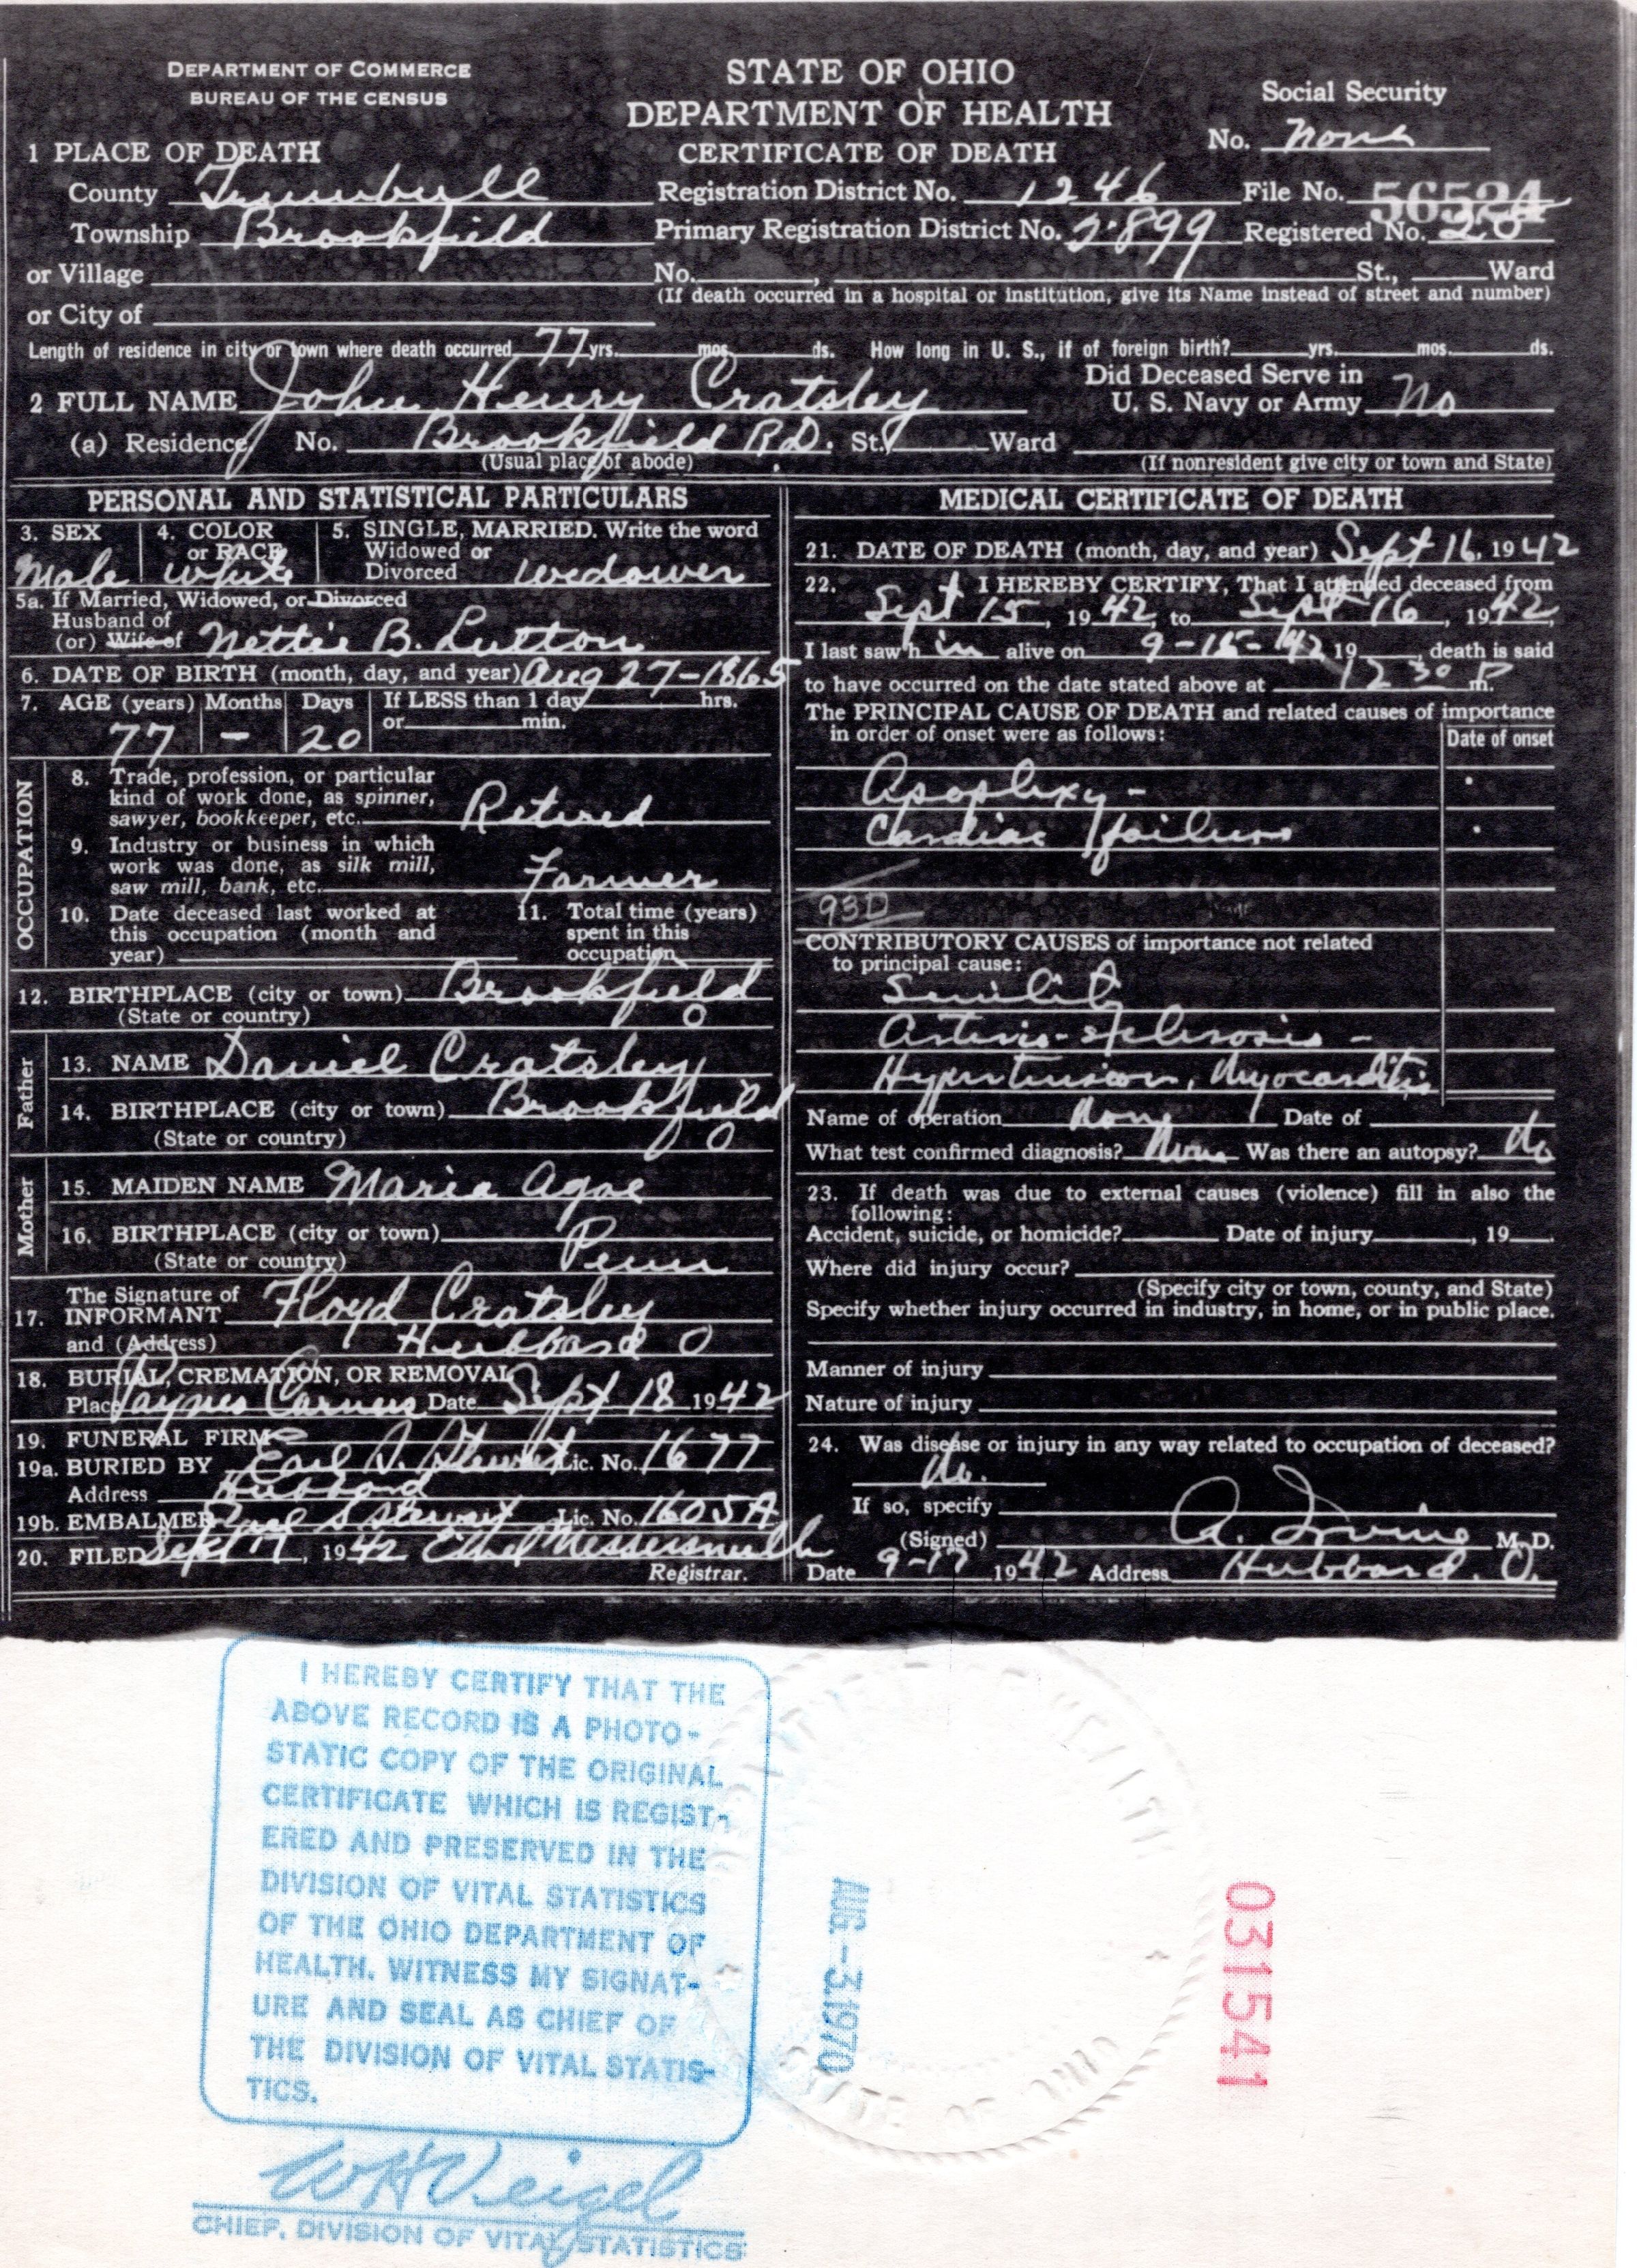 DEPARTMENT OF COMMERCE
BUREAU OF THE CENSUS
STATE OF OHIO
DEPARTMENT OF HEALTH
CERTIFICATE OF DEATH
Social Security
No. None
1 PLACE OF DEATH
County Trumbull
Registration District No. 1246 File No. 56524
Township Brookfield
Primary Registration District No. 2899 Registered No. 28
or Village
No. , St., Ward
(If death occurred in a hospital or institution, give its Name instead of street and number)
or City of
Length of residence in city or town where death occurred 77 yrs. mos. ds. How long in U. S., if of foreign birth? yrs. mos. ds.
2 FULL NAME John Henry Cratsley
Did Deceased Serve in
U. S. Navy or Army No
(a) Residence No. Brookfield RD. St., Ward
(Usual place of abode) (If nonresident give city or town and State)
PERSONAL AND STATISTICAL PARTICULARS
3. SEX 4. COLOR or RACE 5. SINGLE, MARRIED. Write the word
Widowed or
Divorced
Male white widower
5a. If Married, Widowed, or Divorced
Husband of
(or) Wife of Nettie B. Lutton
6. DATE OF BIRTH (month, day, and year) Aug 27-1865
7. AGE (years) Months Days If LESS than 1 day hrs.
or min.
77 - 20
OCCUPATION
8. Trade, profession, or particular
kind of work done, as spinner,
sawyer, bookkeeper, etc. Retired
9. Industry or business in which
work was done, as silk mill,
saw mill, bank, etc. Farmer
10. Date deceased last worked at
this occupation (month and
year)
11. Total time (years)
spent in this
occupation
12. BIRTHPLACE (city or town) Brookfield
(State or country) O
Father
13. NAME Daniel Cratsley
14. BIRTHPLACE (city or town) Brookfield
(State or country) O
Mother
15. MAIDEN NAME Maria Agae
16. BIRTHPLACE (city or town)
(State or country) Penn
The Signature of
17. INFORMANT Floyd Cratsley
and (Address) Hubbard O
18. BURIAL, CREMATION, OR REMOVAL
Place Paynes Corners Date Sept 18 1942
19. FUNERAL FIRM
19a. BURIED BY Earl S. Stewart Lic. No. 1677
Address Hubbard
19b. EMBALMER Earl S Stewart Lic. No. 1605A
20. FILED Sept 19, 1942 Ethel Messersmith
Registrar.
MEDICAL CERTIFICATE OF DEATH
21. DATE OF DEATH (month, day, and year) Sept 16, 1942
22. I HEREBY CERTIFY, That I attended deceased from
Sept 15, 1942, to Sept 16, 1942,
I last saw h im alive on 9-15-42 19 , death is said
to have occurred on the date stated above at 12 30 P m.
The PRINCIPAL CAUSE OF DEATH and related causes of importance
in order of onset were as follows:
Date of onset
Apoplexy -
Cardiac failure
93D
CONTRIBUTORY CAUSES of importance not related
to principal cause:
Senility
Arterio-sclerosis -
Hypertension, Myocarditis
Name of operation None Date of
What test confirmed diagnosis? None Was there an autopsy? No
23. If death was due to external causes (violence) fill in also the
following:
Accident, suicide, or homicide? Date of injury , 19 .
Where did injury occur?
(Specify city or town, county, and State)
Specify whether injury occurred in industry, in home, or in public place.
Manner of injury
Nature of injury
24. Was disease or injury in any way related to occupation of deceased?
No.
If so, specify
(Signed) A. Irvine M. D.
Date 9-17 1942 Address Hubbard. O.
I HEREBY CERTIFY THAT THE
ABOVE RECORD IS A PHOTO-
STATIC COPY OF THE ORIGINAL
CERTIFICATE WHICH IS REGIST-
ERED AND PRESERVED IN THE
DIVISION OF VITAL STATISTICS
OF THE OHIO DEPARTMENT OF
HEALTH. WITNESS MY SIGNAT-
URE AND SEAL AS CHIEF OF
THE DIVISION OF VITAL STATIS-
TICS.
WH Veigel
CHIEF, DIVISION OF VITAL STATISTICS
AUG.-3.1970
STATE OF OHIO
031541